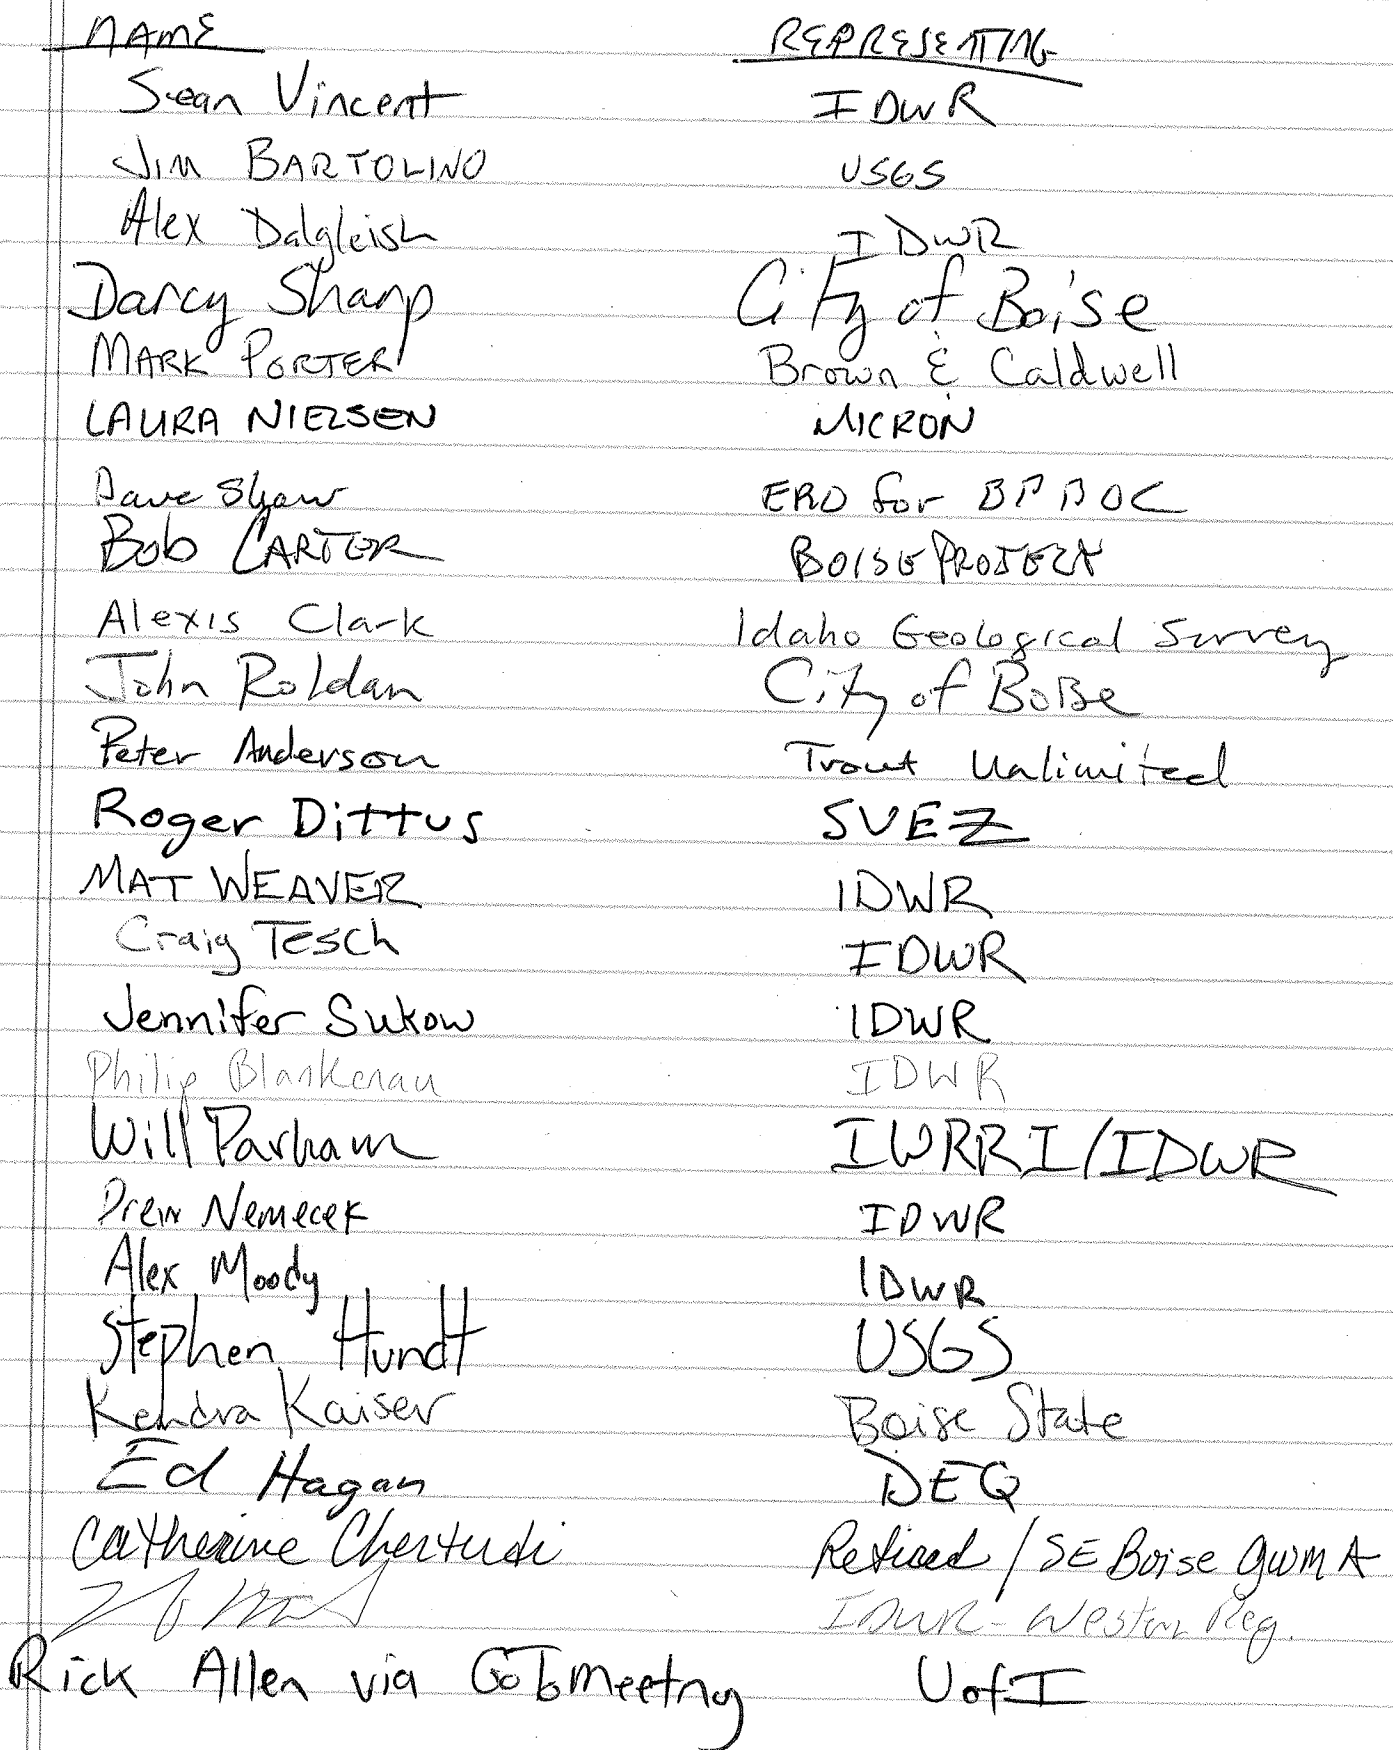 NAME REPRESENTING
Sean Vincent IDWR
Jim BARTOLINO USGS
Alex Dalgleish IDWR
Darcy Sharp City of Boise
MARK PORTER Brown & Caldwell
LAURA NIELSEN MICRON
Dave Shaw ERO for BPBOC
Bob CARTER BOISE PROJECT
Alexis Clark Idaho Geological Survey
John Roldan City of Boise
Peter Anderson Trout Unlimited
Roger Dittus SUEZ
MAT WEAVER IDWR
Craig Tesch IDWR
Jennifer Sukow IDWR
Philip Blankenau IDWR
Will Parham IWRRI/IDWR
Drew Nemecek IDWR
Alex Moody IDWR
Stephen Hundt USGS
Kendra Kaiser Boise State
Ed Hagan DEQ
Catherine Chertudi Retired / SE Boise GWMA
IDWR - Western Reg.
Rick Allen via GoToMeeting UofI